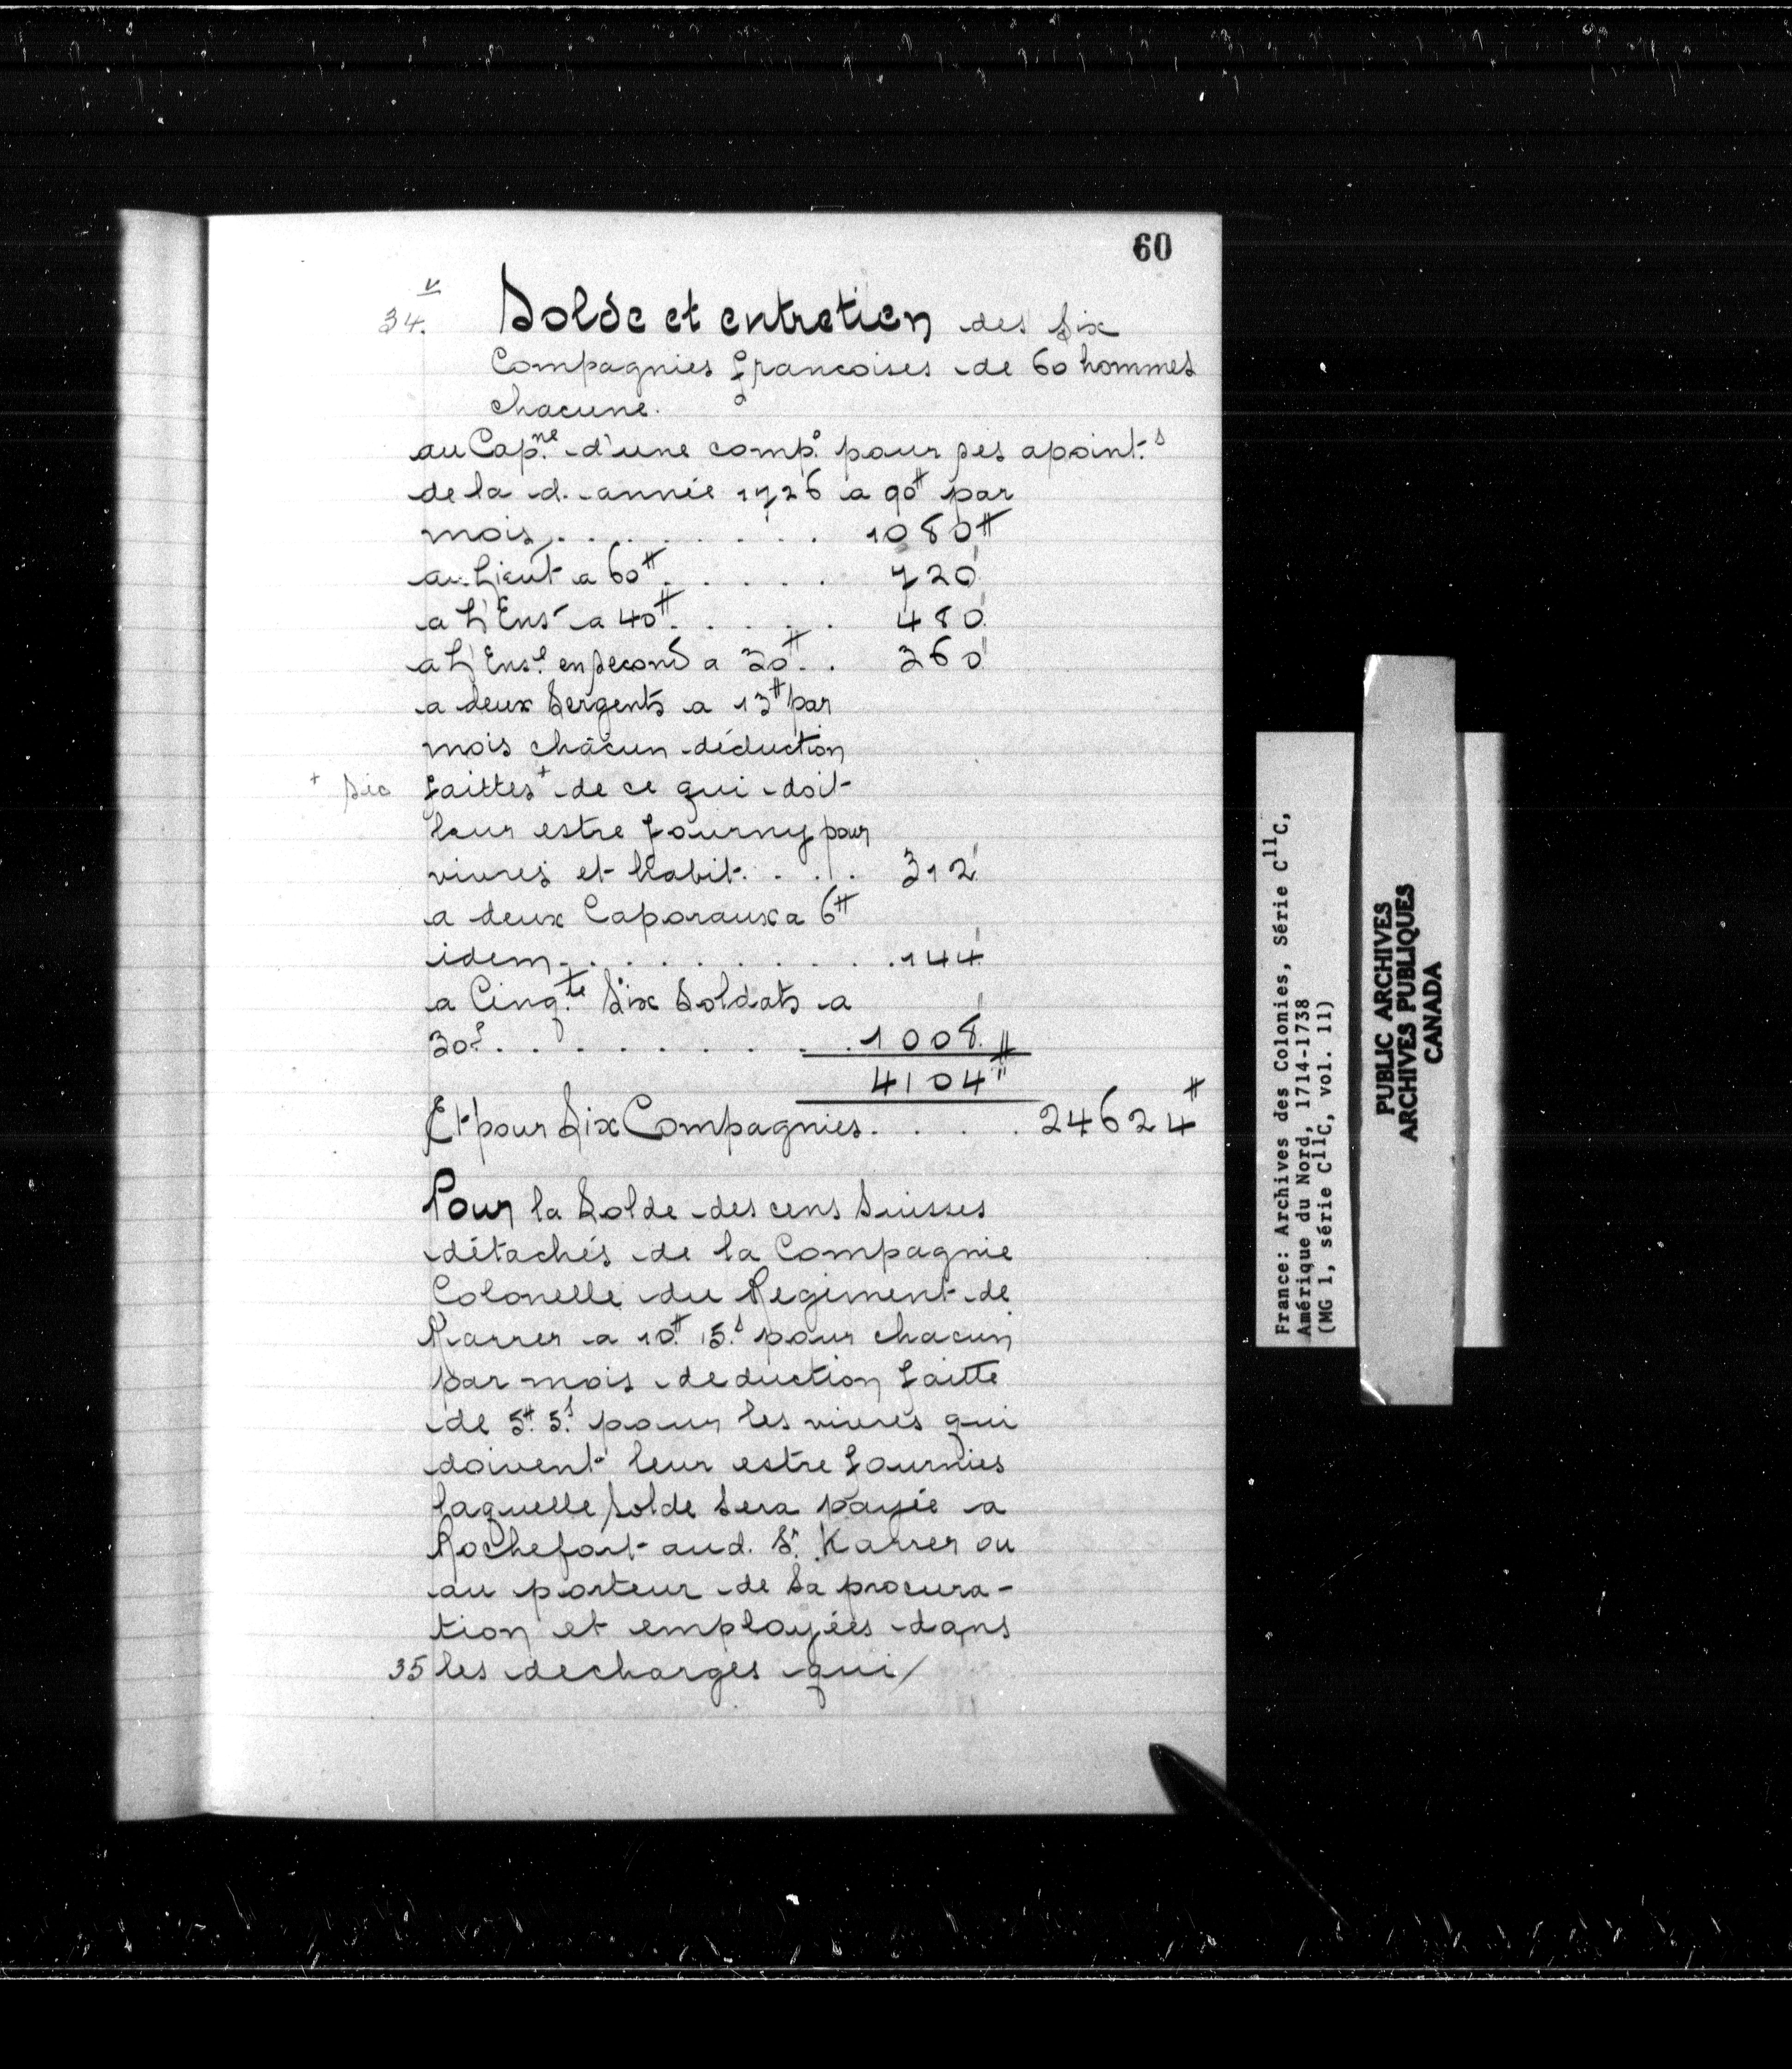 60
34.v Solde et entretien des Six
Compagnies francoises de 60 hommes
chacune.
au Capne. d'une compe. pour ses apoint.s
de la d. année 1726 a 90# par
mois . . . . . . . . 1080#
au Lieut a 60# . . . . . 720"
a L'Ens- a 40# . . . . . 480"
a L'Ens.e en second a 30# . . 360"
a deux Sergents a 13# par
mois châcun déduction
+ Sic faittes+ de ce qui doit
leur estre fourny pour
vivres et habit . . . . 312"
a deux Caporaux a 6#
idem . . . . . . . . . . 144"
a Cinq.te Six Soldats a
30s. . . . . . . . . . 1008"
4104#
Et pour Six Compagnies . . . . . 24624#
Pour la Solde des cens Suisses
détachés de la Compagnie
Colonelle du Regiment de
Karrer a 10# 15.s pour chacun
par mois deduction faitte
de 5# 5.s pour les vivres qui
doivent leur estre fournies
laquelle solde sera payée a
Rochefort aud. Sr. Karrer ou
au porteur de sa procura-
tion et employées dans
35 les decharges qui/
France: Archives des Colonies, Série C11C,
Amérique du Nord, 1714-1738
(MG 1, série C11C, vol. 11)
PUBLIC ARCHIVES
ARCHIVES PUBLIQUES
CANADA